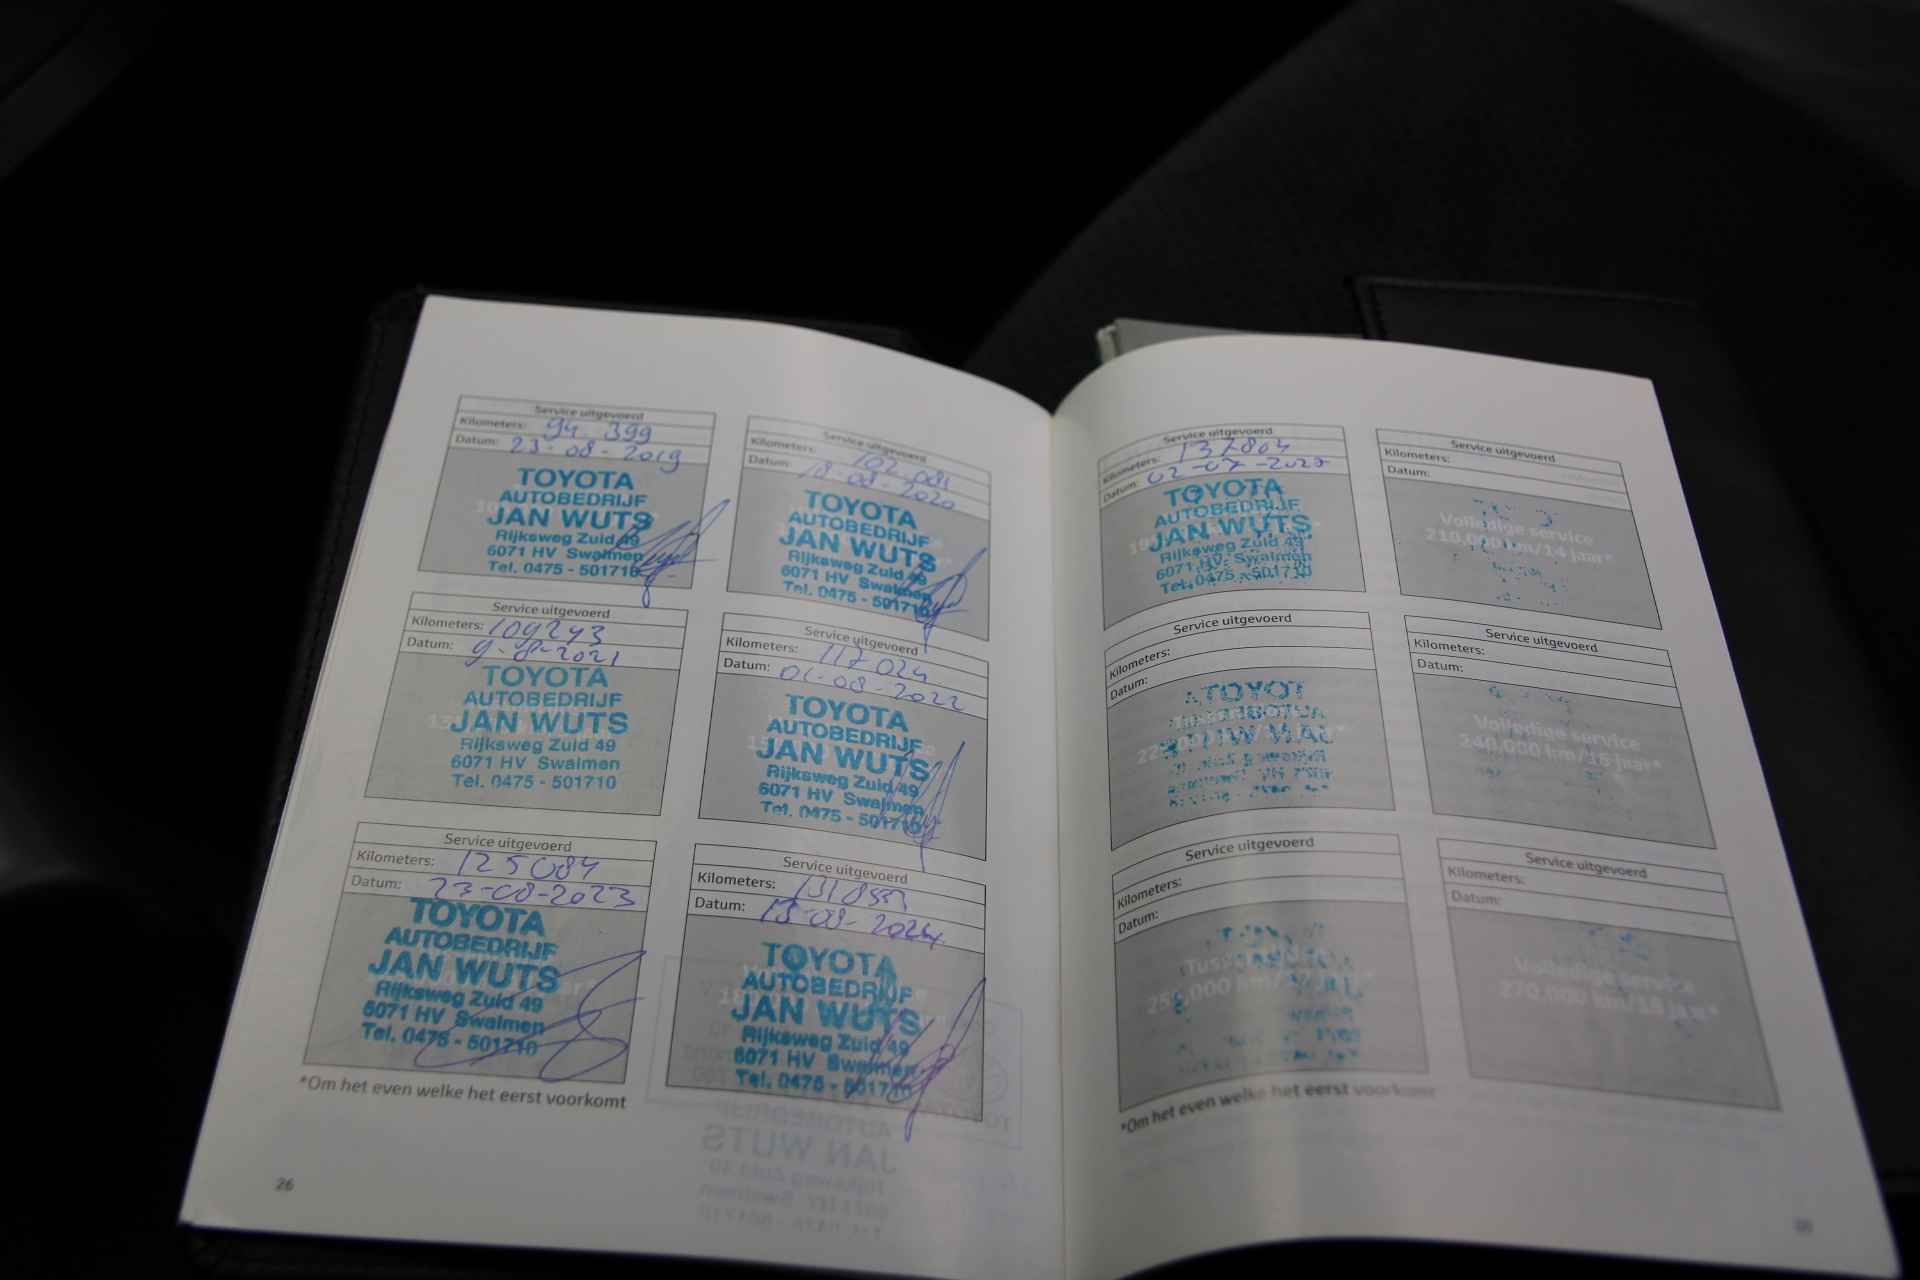 Service uitgevoerd
Kilometers: 94.399
Datum: 23-08-2019
TOYOTA
AUTOBEDRIJF
JAN WUTS
Rijksweg Zuid 49
6071 HV Swalmen
Tel. 0475 - 501710
Service uitgevoerd
Kilometers: 102.081
Datum: 18-08-2020
TOYOTA
AUTOBEDRIJF
JAN WUTS
Rijksweg Zuid 49
6071 HV Swalmen
Tel. 0475 - 501710
Service uitgevoerd
Kilometers: 109243
Datum: 9-8-2021
TOYOTA
AUTOBEDRIJF
JAN WUTS
Rijksweg Zuid 49
6071 HV Swalmen
Tel. 0475 - 501710
Service uitgevoerd
Kilometers: 117024
Datum: 01-08-2022
TOYOTA
AUTOBEDRIJF
JAN WUTS
Rijksweg Zuid 49
6071 HV Swalmen
Tel. 0475 - 501710
Service uitgevoerd
Kilometers: 125084
Datum: 23-08-2023
TOYOTA
AUTOBEDRIJF
JAN WUTS
Rijksweg Zuid 49
6071 HV Swalmen
Tel. 0475 - 501710
Service uitgevoerd
Kilometers:
Datum: 13-08-2024
TOYOTA
AUTOBEDRIJF
JAN WUTS
Rijksweg Zuid 49
6071 HV Swalmen
Tel. 0475 - 501710
*Om het even welke het eerst voorkomt
26
Service uitgevoerd
Kilometers: 137804
Datum:
TOYOTA
AUTOBEDRIJF
JAN WUTS
Rijksweg Zuid 49
6071 HV Swalmen
Tel. 0475 - 501710
Service uitgevoerd
Kilometers:
Datum:
Volledige service
210.000 km/14 jaar*
Service uitgevoerd
Kilometers:
Datum:
Service uitgevoerd
Kilometers:
Datum:
Volledige service
240.000 km/16 jaar*
Service uitgevoerd
Kilometers:
Datum:
Service uitgevoerd
Kilometers:
Datum:
Volledige service
270.000 km/18 jaar*
*Om het even welke het eerst voorkomt